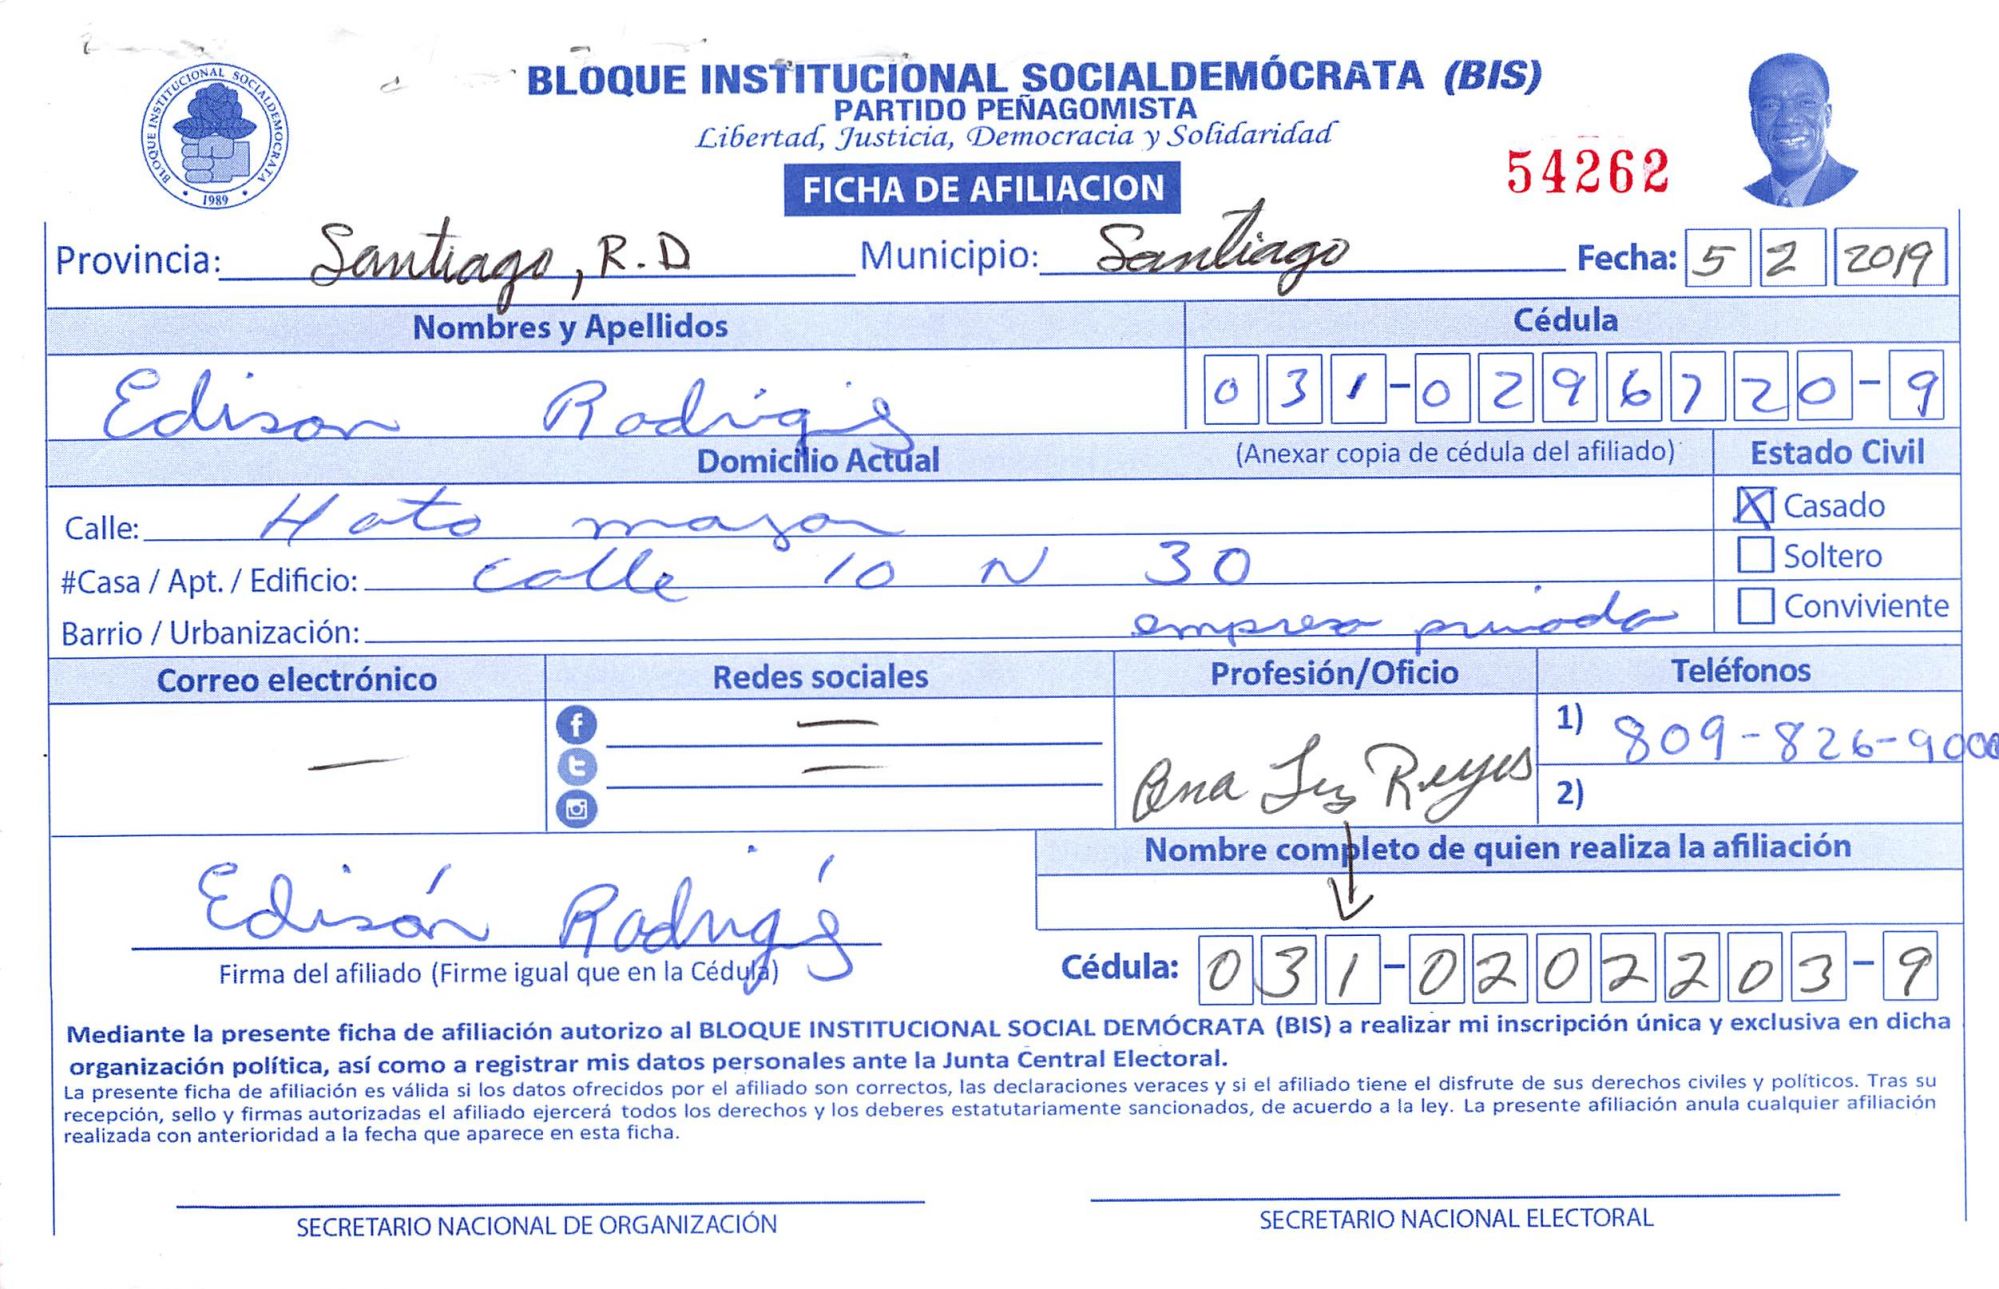 BLOQUE INSTITUCIONAL SOCIALDEMÓCRATA (BIS)
PARTIDO PEÑAGOMISTA
Libertad, Justicia, Democracia y Solidaridad
BLOQUE INSTITUCIONAL SOCIALDEMOCRATA
1989
FICHA DE AFILIACION
54262
Provincia: Santiago, R.D Municipio: Santiago Fecha: 5 2 2019
Nombres y Apellidos Cédula
Edison Rodrigs 031-0296720-9
Domicilio Actual (Anexar copia de cédula del afiliado) Estado Civil
Calle: Hato mayor X Casado
#Casa / Apt. / Edificio: calle 10 N 30 Soltero
Barrio / Urbanización: Conviviente
empresa privada
Correo electrónico Redes sociales Profesión/Oficio Teléfonos
— — 1) 809-826-900
— Ana Reyes 2)
Nombre completo de quien realiza la afiliación
Edisón Rodrigs
Firma del afiliado (Firme igual que en la Cédula) Cédula: 031-0202203-9
Mediante la presente ficha de afiliación autorizo al BLOQUE INSTITUCIONAL SOCIAL DEMÓCRATA (BIS) a realizar mi inscripción única y exclusiva en dicha
organización política, así como a registrar mis datos personales ante la Junta Central Electoral.
La presente ficha de afiliación es válida si los datos ofrecidos por el afiliado son correctos, las declaraciones veraces y si el afiliado tiene el disfrute de sus derechos civiles y políticos. Tras su
recepción, sello y firmas autorizadas el afiliado ejercerá todos los derechos y los deberes estatutariamente sancionados, de acuerdo a la ley. La presente afiliación anula cualquier afiliación
realizada con anterioridad a la fecha que aparece en esta ficha.
SECRETARIO NACIONAL DE ORGANIZACIÓN SECRETARIO NACIONAL ELECTORAL